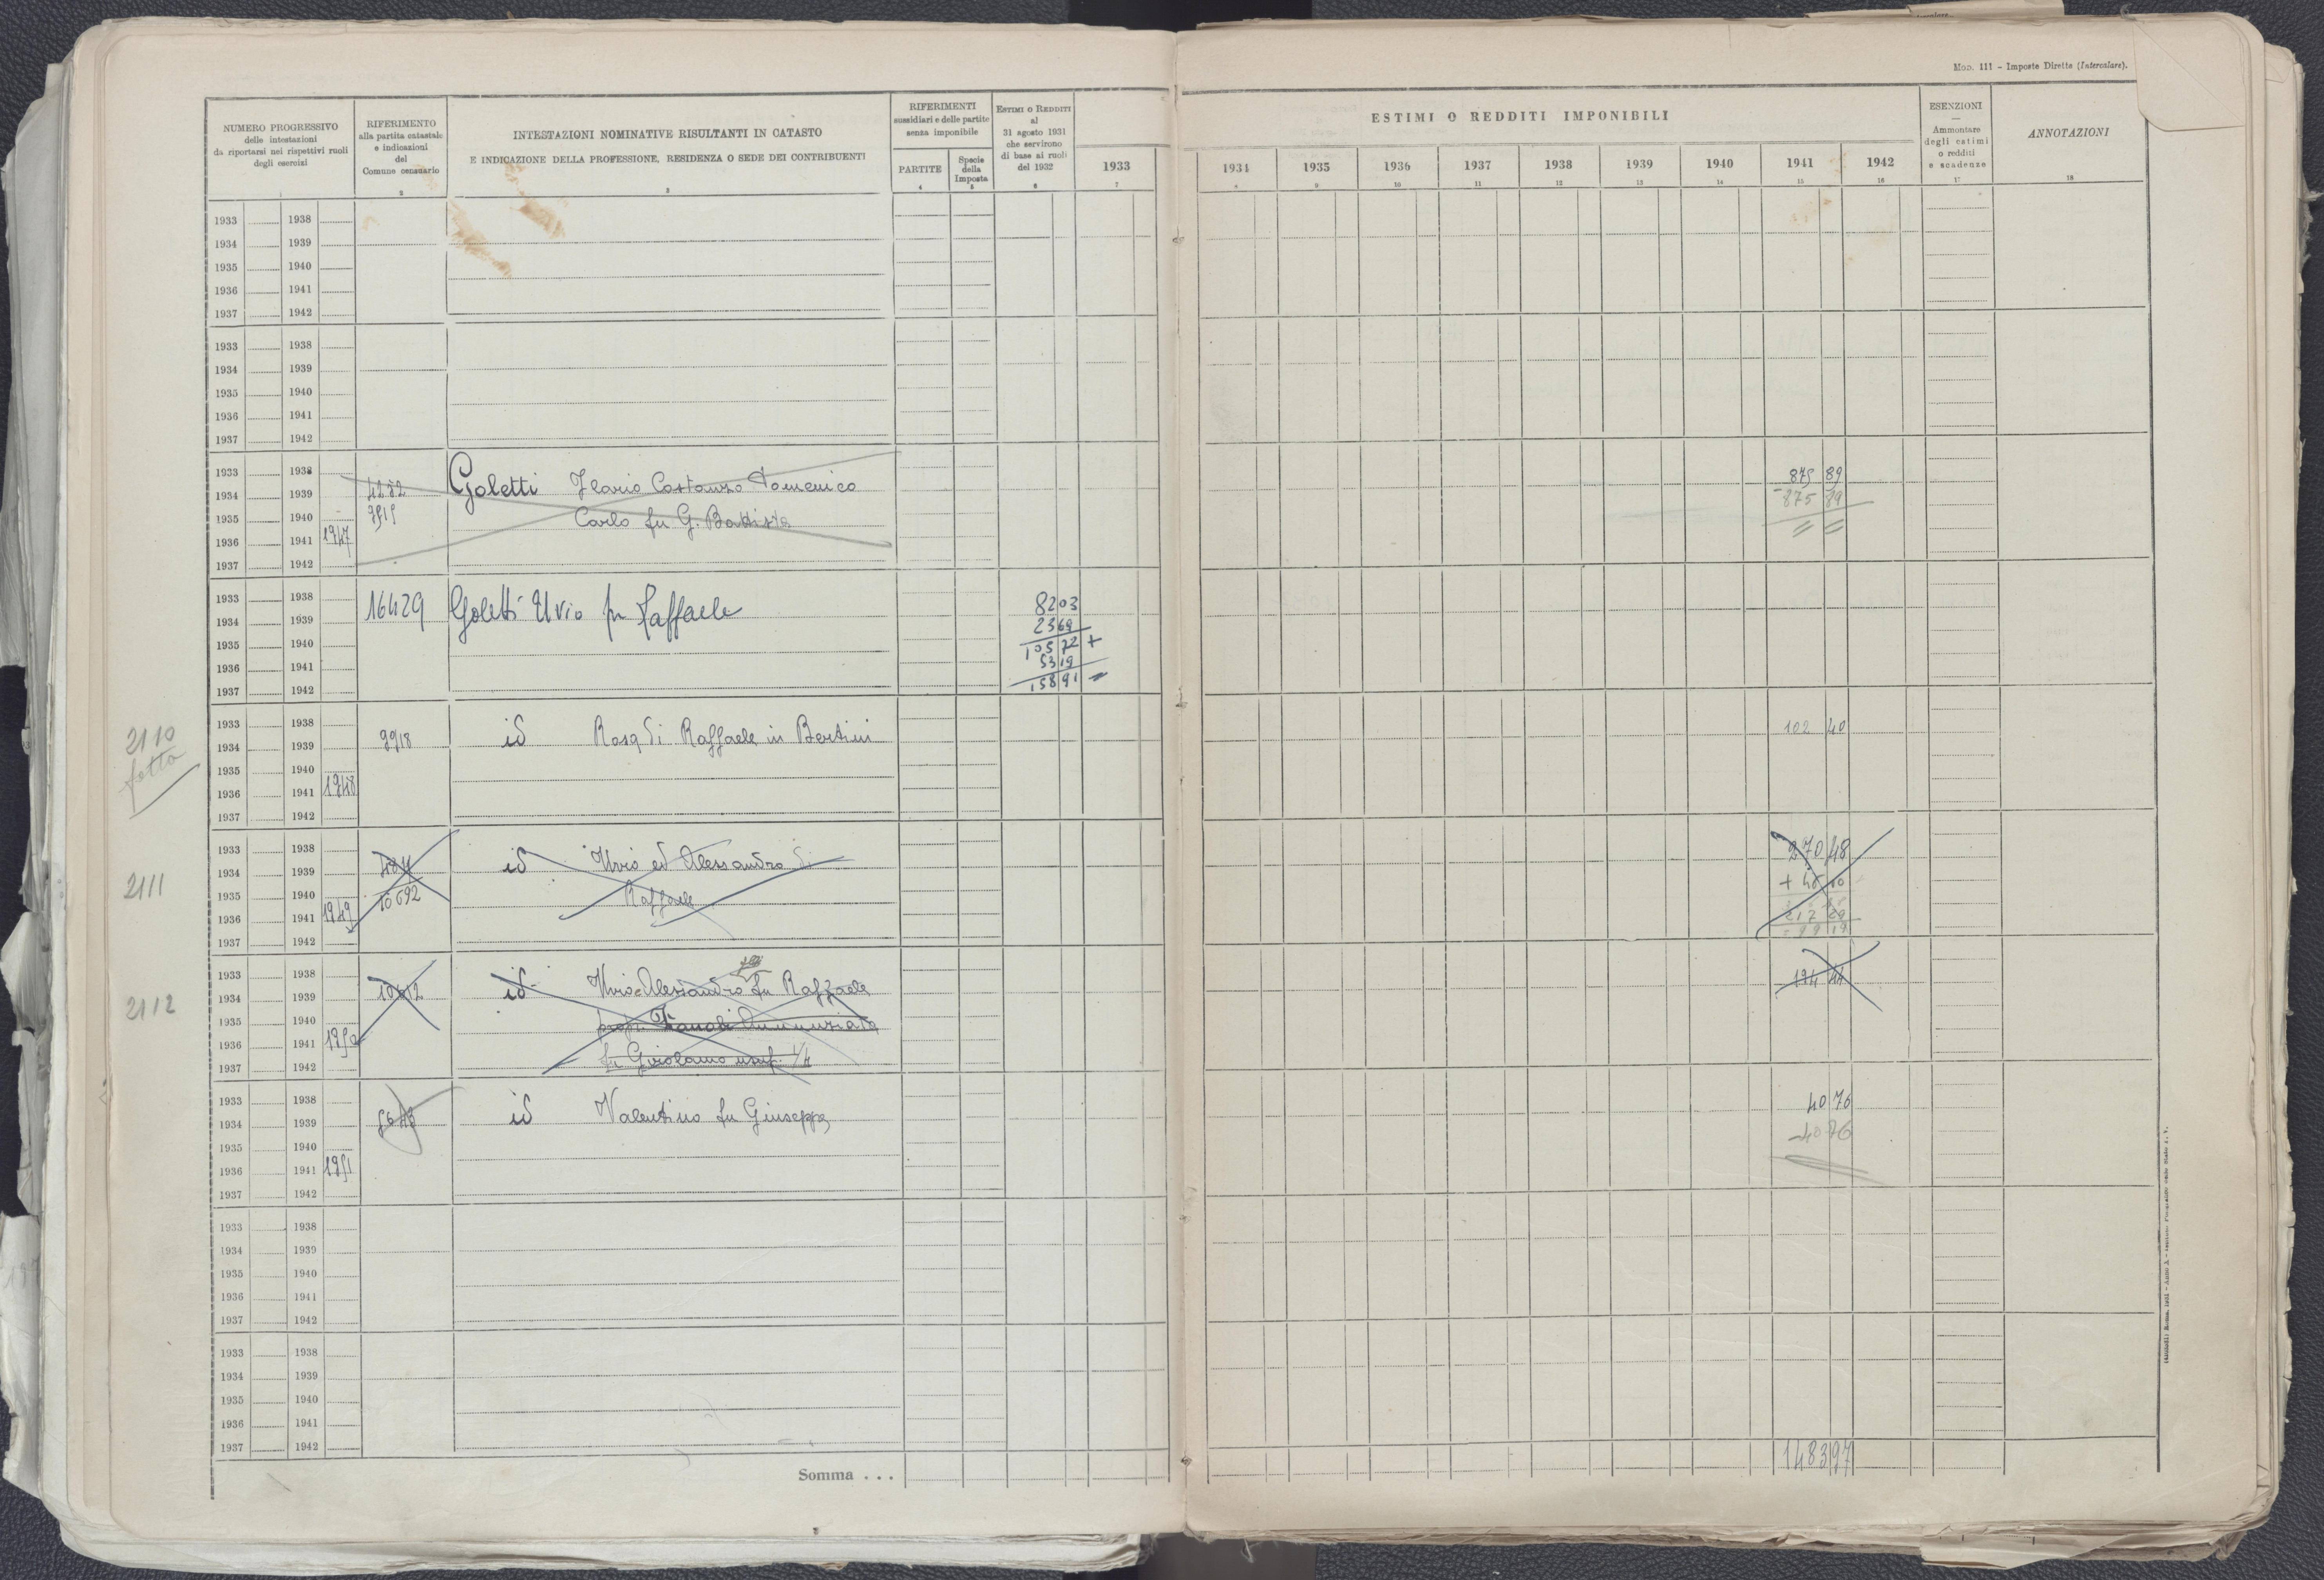 Mod. 111 - Imposte Dirette (Intercalare).
NUMERO PROGRESSIVO
delle intestazioni
da riportarsi nei rispettivi ruoli
degli esercizi
1
RIFERIMENTO
alla partita catastale
e indicazioni
del
Comune censuario
2
INTESTAZIONI NOMINATIVE RISULTANTI IN CATASTO
E INDICAZIONE DELLA PROFESSIONE, RESIDENZA O SEDE DEI CONTRIBUENTI
3
RIFERIMENTI
sussidiari e delle partite
senza imponibile
PARTITE
4
Specie
della
Imposta
5
Estimi o Redditi
al
31 agosto 1931
che servirono
di base ai ruoli
del 1932
6
1933
7
ESTIMI O REDDITI IMPONIBILI
1934 1935 1936 1937 1938 1939 1940 1941 1942
8 9 10 11 12 13 14 15 16
ESENZIONI
Ammontare
degli estimi
o redditi
e scadenze
17
ANNOTAZIONI
18
1933 1938
1934 1939
1935 1940
1936 1941
1937 1942
1933 1938
1934 1939
1935 1940
1936 1941
1937 1942
1933 1938
1934 1939 4282 Goletti Ilario Costanzo Domenico 875 89
1935 1940 Carlo fu G. Battista - 875 89
1936 1941 1947
1937 1942
1933 1938 16429 Goletti Urio fu Raffaele 8203
1934 1939 2369
1935 1940 10572 +
1936 1941 5319
1937 1942 15891 =
2110
fatto
1933 1938
1934 1939 9918 id Rosa di Raffaele in Bertini 102 40
1935 1940
1936 1941 1948
1937 1942
2111
1933 1938 270 48
1934 1939 id Urio ed Alessandro di
1935 1940 10692 Raffaele
1936 1941 1949 217 29
1937 1942
2112
1933 1938
1934 1939 id Urio Alessandro fu Raffaele 194 44
1935 1940 Annunziata
1936 1941 1950
1937 1942 fu Girolamo usuf. 1/4
1933 1938 40 76
1934 1939 id Valentino fu Giuseppe
1935 1940 - 40 76
1936 1941 1951
1937 1942
1933 1938
1934 1939
1935 1940
1936 1941
1937 1942
1933 1938
1934 1939
1935 1940
1936 1941
1937 1942
Somma . . . 1483 97